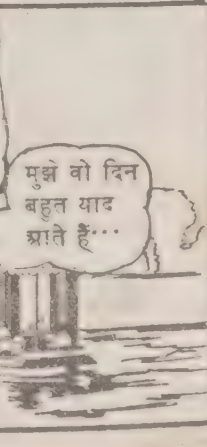 मुझे वो दिन
बहुत याद
आते हैं...